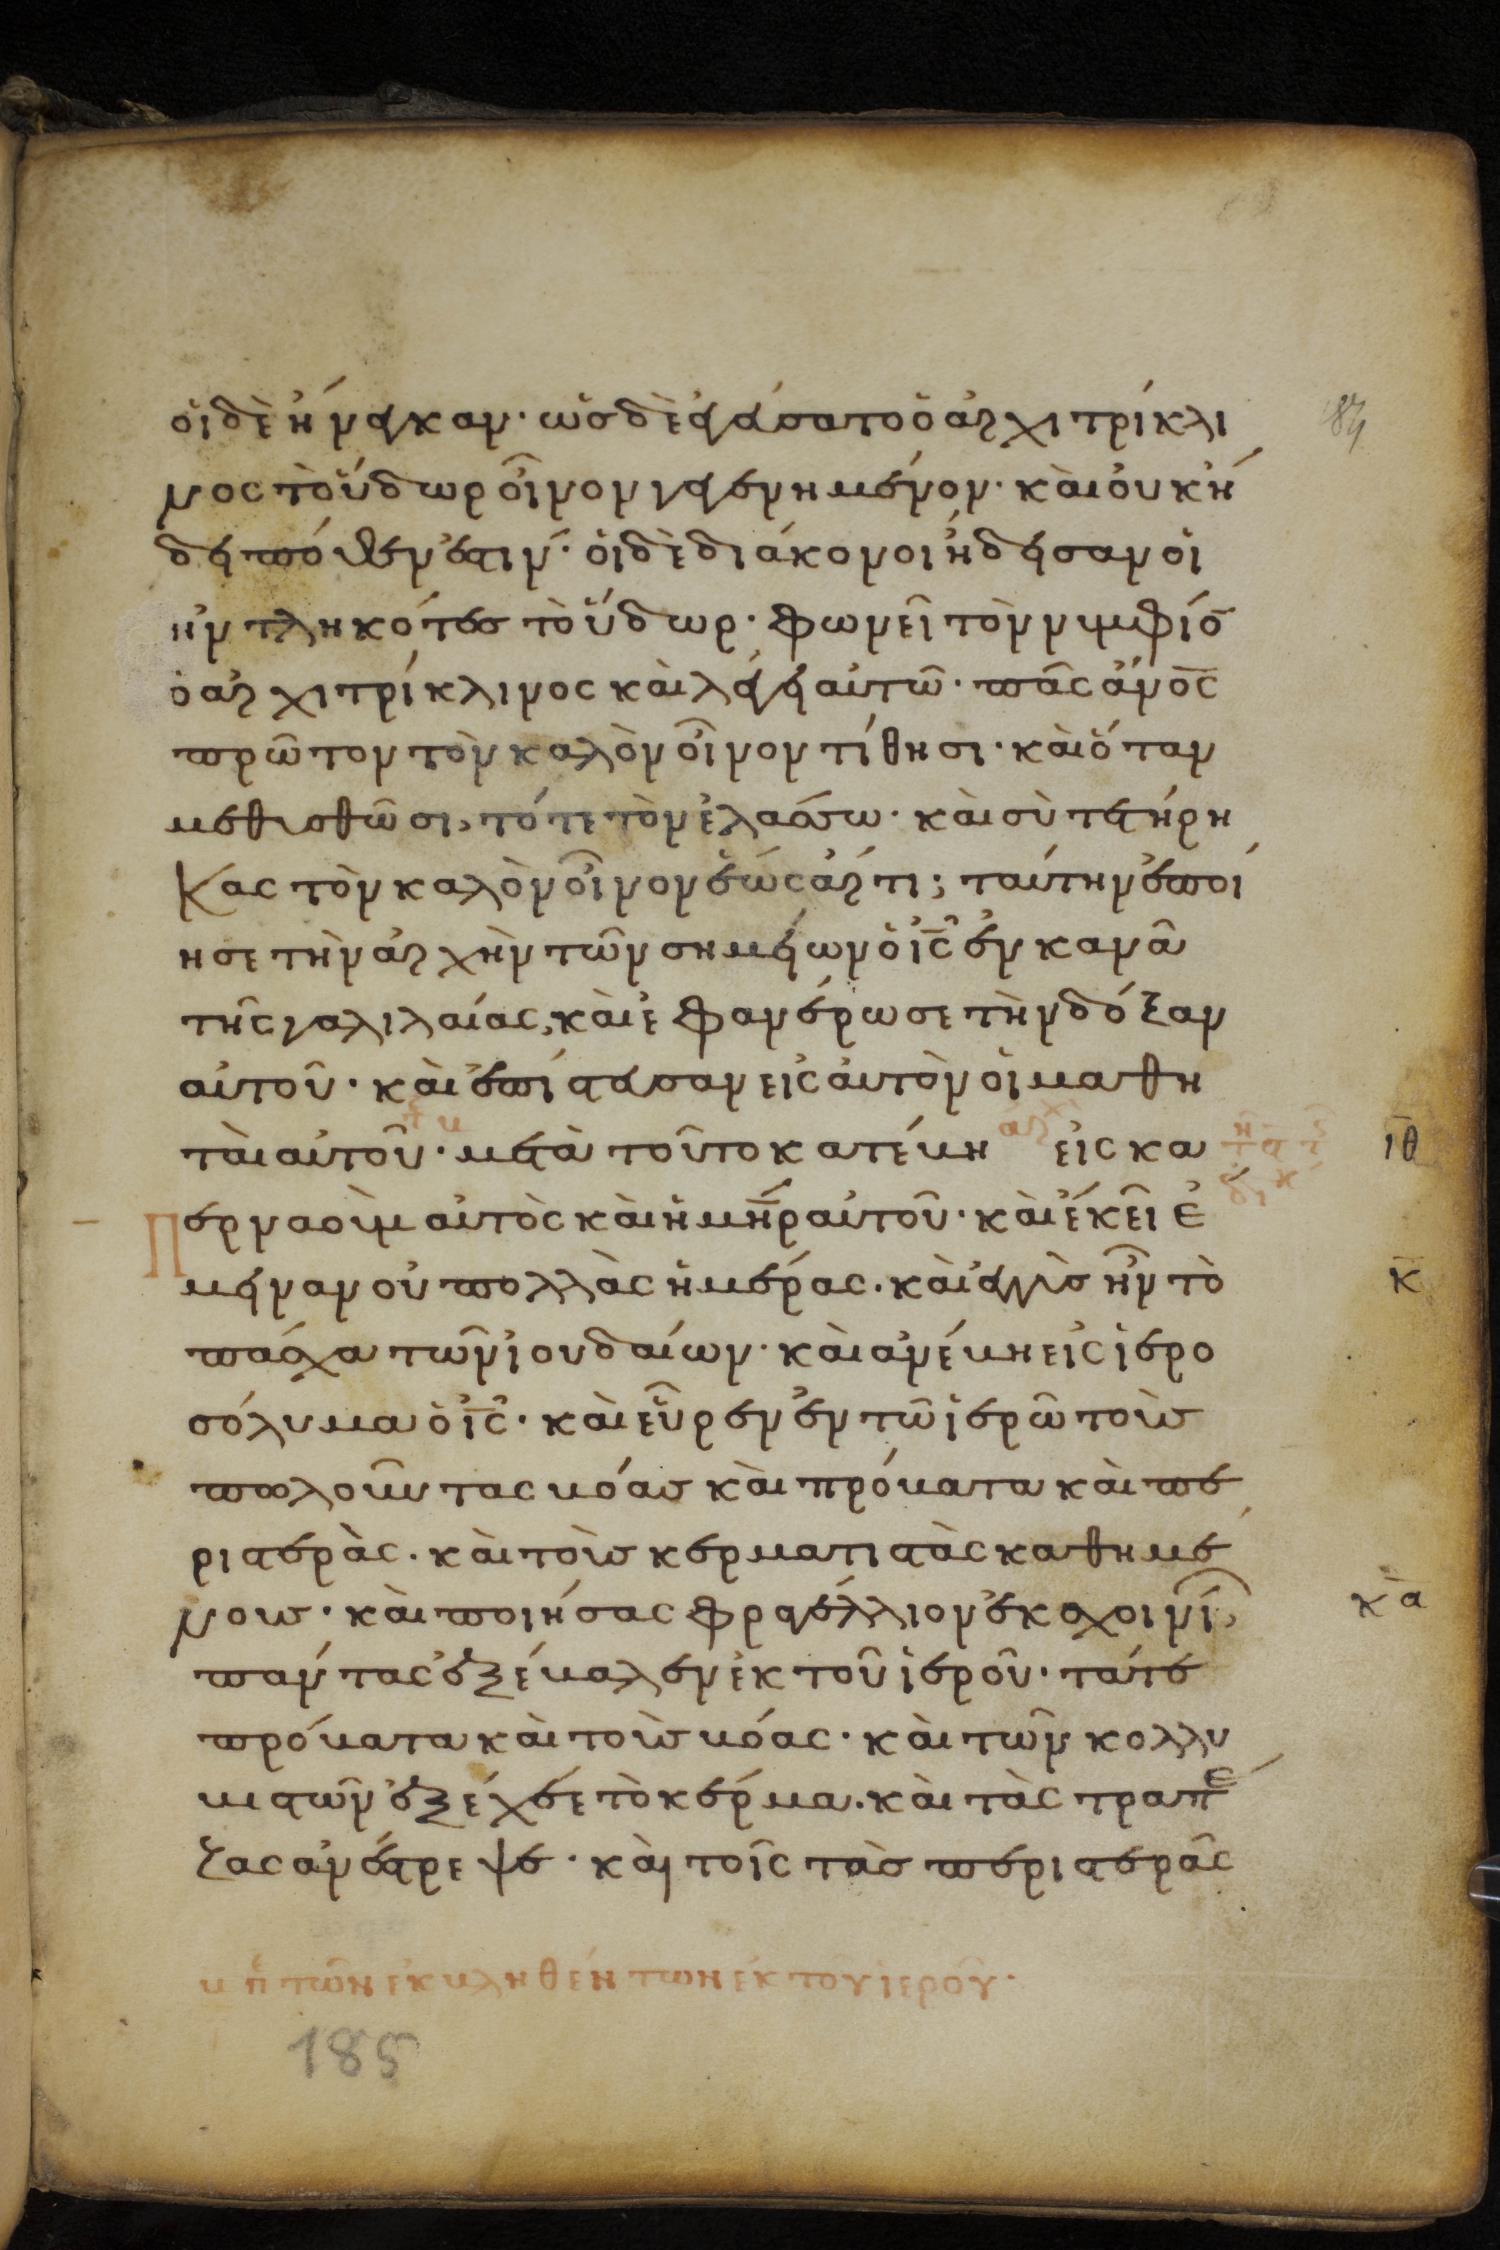 οἱ δὲ ἤνεγκαν· ὡς δὲ ἐγεύσατο ὁ ἀρχιτρίκλι
νος τὸ ὕδωρ οἶνον γεγενημένον· καὶ οὐκ ἤ
δει πόθεν ἐστιν· οἱ δὲ διάκονοι ἤδεισαν οἱ
ἠντληκότες τὸ ὕδωρ· φωνεῖ τὸν νυμφίο̅
ὁ ἀρχιτρίκλινος καὶ λέγει αὐτῶ· πᾶς ἄνο̅ς
πρῶτον τὸν καλὸν οἶνον τίθησι· καὶ ὅταν
μεθυσθῶσι, τότε τὸν ἐλάσσω· καὶ σὺ τετήρη
κας τὸν καλὸν οἶνον ἕως ἄρτι; ταύτην ἐποί
ησε τὴν ἀρχὴν τῶν σημείων ὁ ι̅ς̅ ἐν κανᾶ
τῆς γαλιλαίας, καὶ ἐφανέρωσε τὴν δόξαν
αὐτοῦ· καὶ ἐπίστευσαν εἰς αὐτὸν οἱ μαθη
ταὶ αὐτοῦ· μετὰ τοῦτο κατέβη εἰς κα ιθ
περναοὺμ αὐτὸς καὶ ἡ μη̅ρ αὐτοῦ· καὶ ἐκεῖ ἐ
μειναν οὐ πολλὰς ἡμέρας· καὶ ἐγγὺς ἦν τὸ κ
πάσχα τῶν ἰουδαίων· καὶ ἀνέβη εἰς ἱερο
σόλυμα ὁ ι̅ς̅· καὶ εὗρεν ἐν τῶ ἱερῶ τοὺς
πωλοῦντας βόας καὶ πρόβατα καὶ πε
ριστεράς· καὶ τοὺς κερματιστὰς καθημέ
νους· καὶ ποιήσας φραγέλλιον ἐκ σχοινί, κα
πάντας ἐξέβαλεν ἐκ τοῦ ἱεροῦ· τά τε
πρόβατα καὶ τοὺς βόας· καὶ τῶν κολλυ
βιστῶν ἐξέχεε τὸ κέρμα· καὶ τὰς τραπέ
ζας ἀνέστρεψε· καὶ τοῖς τὰς περιστερὰς
β π̅ τῶν ἐκβληθέντων ἐκ τοῦ ἱεροῦ·
185